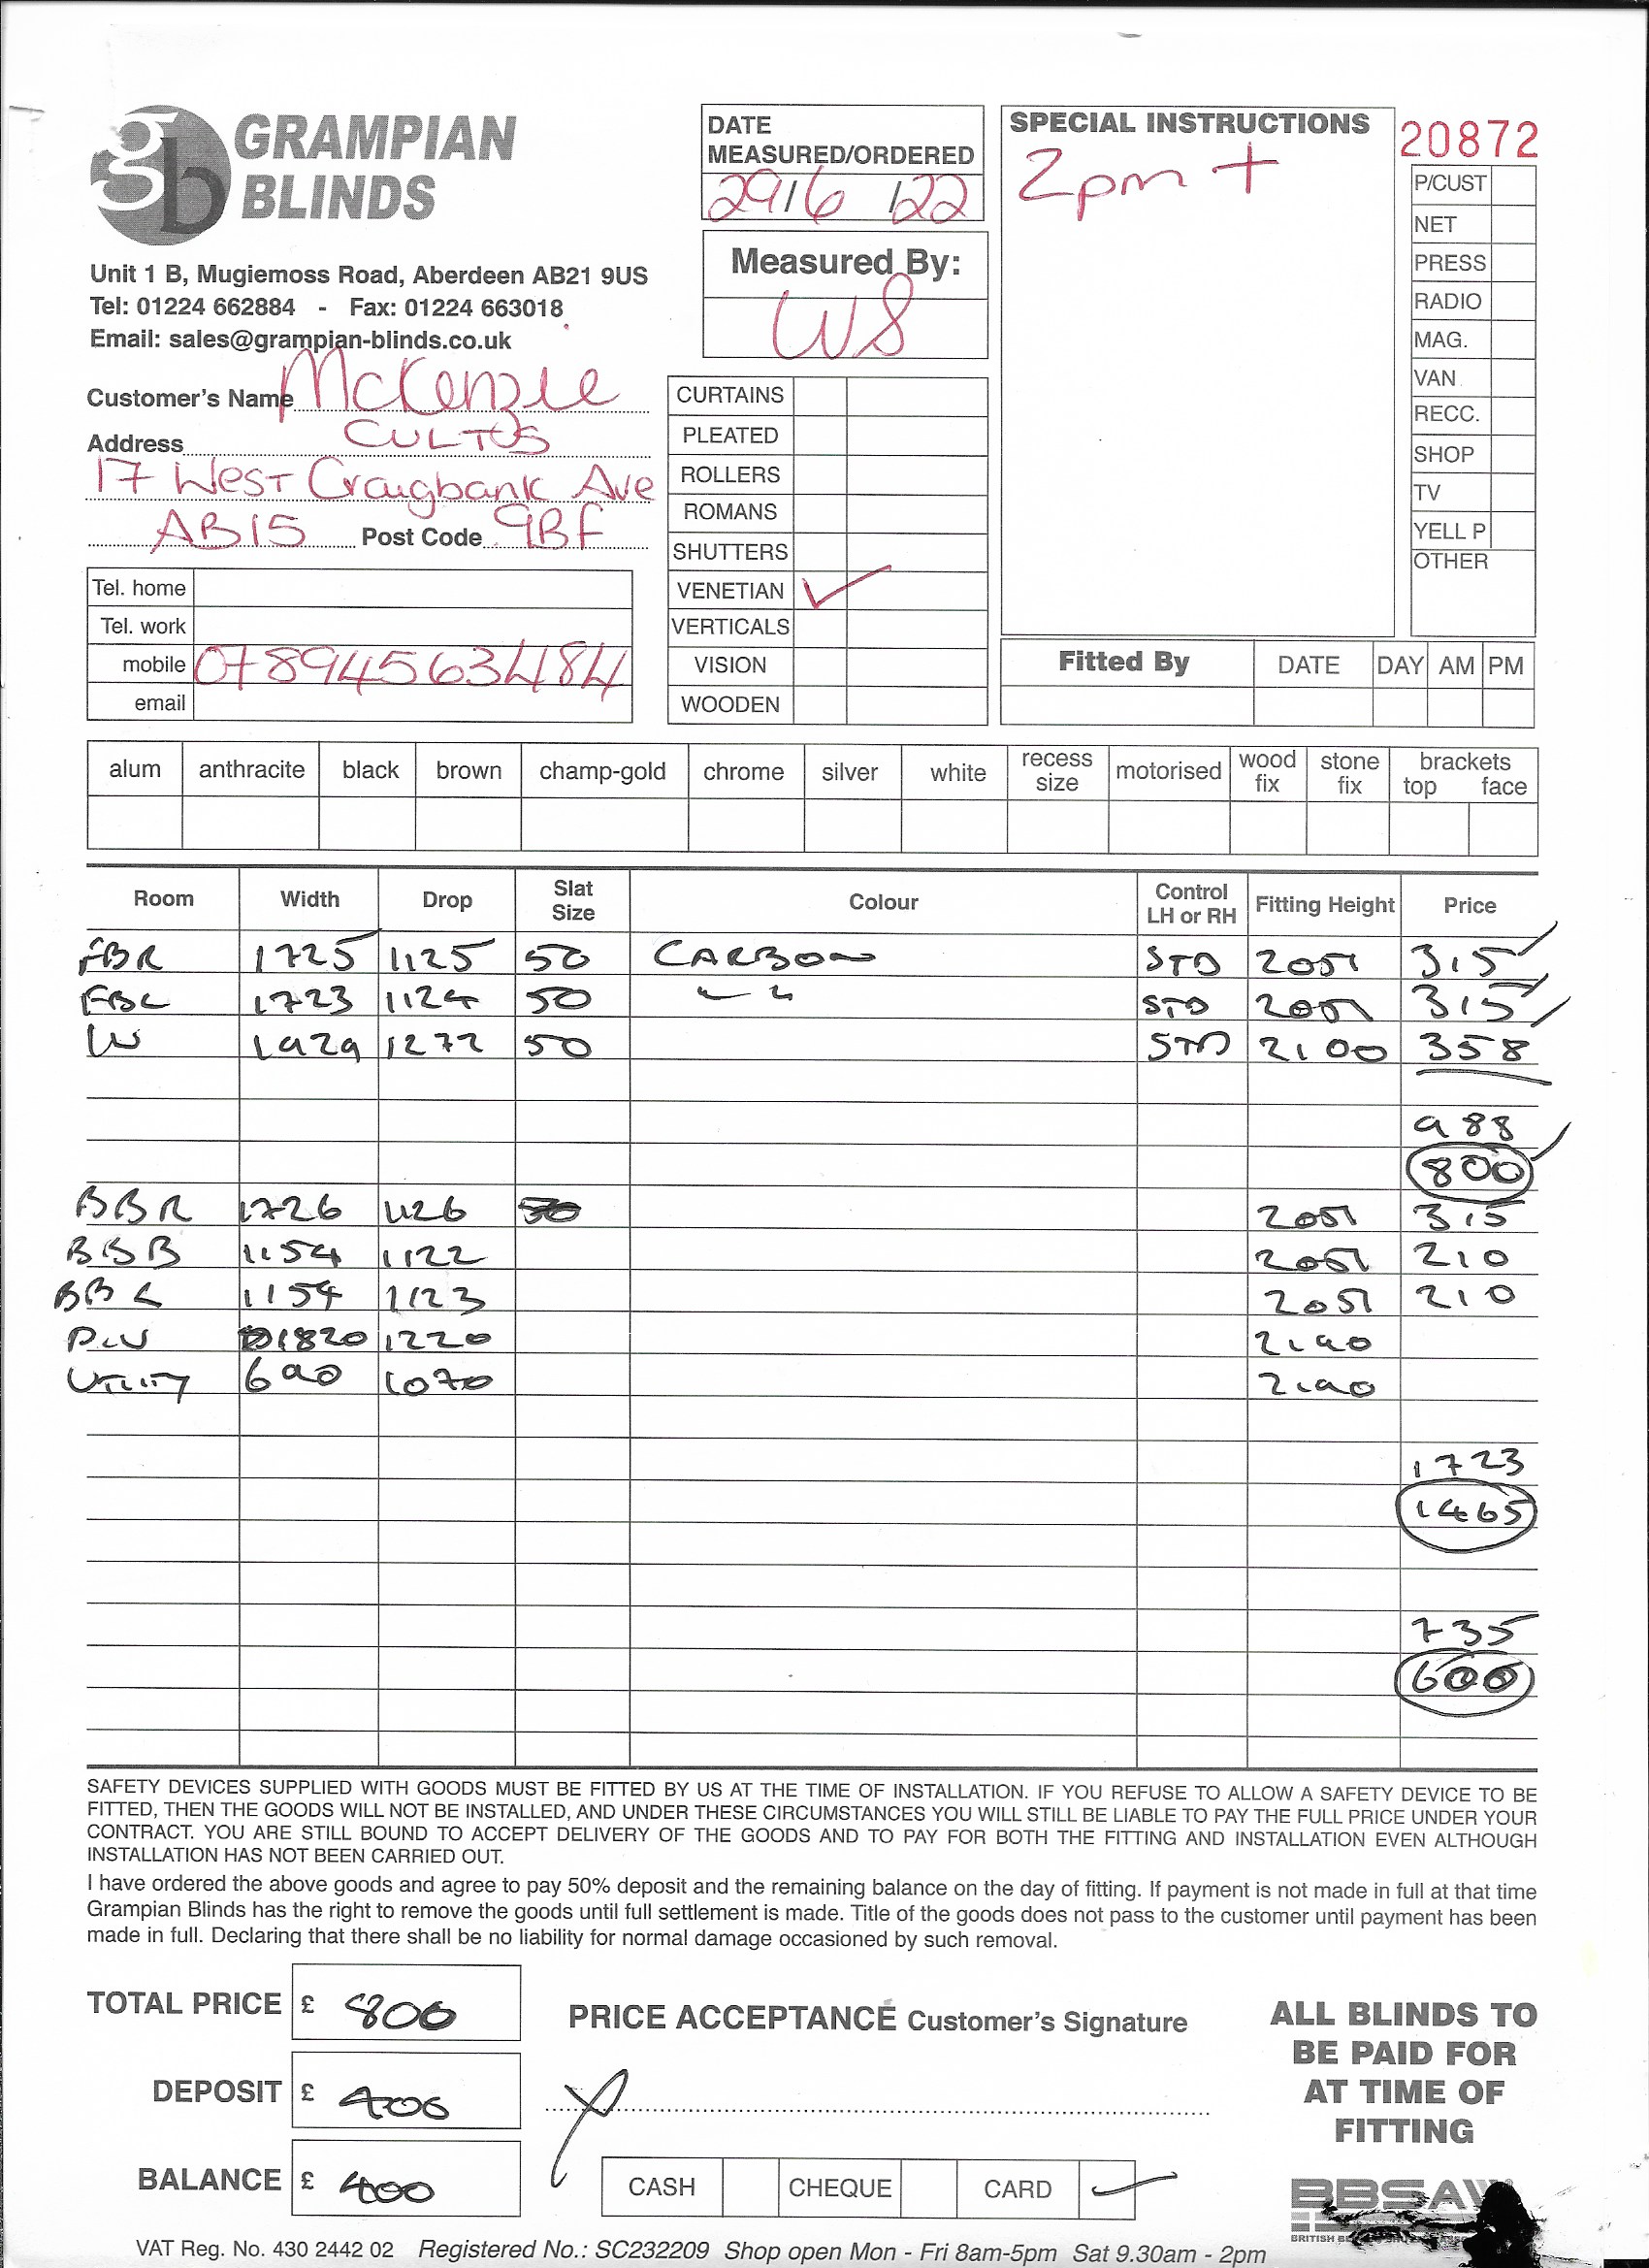 GRAMPIAN
BLINDS
Unit 1 B, Mugiemoss Road, Aberdeen AB21 9US
Tel: 01224 662884 - Fax: 01224 663018
Email: sales@grampian-blinds.co.uk
DATE
MEASURED/ORDERED
29/6/22
Measured By:
WS
SPECIAL INSTRUCTIONS
2pm +
20872
P/CUST
NET
PRESS
RADIO
MAG.
VAN
RECC.
SHOP
TV
YELL P
OTHER
Customer's Name McKenzie
Address CULTS
17 West Craigbank Ave
AB15 Post Code 9BF
Tel. home
Tel. work
mobile 07894563484
email
CURTAINS
PLEATED
ROLLERS
ROMANS
SHUTTERS
VENETIAN ✓
VERTICALS
VISION
WOODEN
Fitted By DATE DAY AM PM
alum anthracite black brown champ-gold chrome silver white recess size motorised wood fix stone fix brackets top face
Room Width Drop Slat Size Colour Control LH or RH Fitting Height Price
FBR 1725 1125 50 CARBON STD 2051 315
FBL 1723 1124 50 " " STD 2051 315
LV 1929 1272 50 STD 2100 358
988
800
BBR 1726 1126 2051 315
BBB 1154 1122 2051 210
BBL 1154 1123 2051 210
1820 1220 2190
UTILITY 690 1070 2190
1723
1465
735
600
SAFETY DEVICES SUPPLIED WITH GOODS MUST BE FITTED BY US AT THE TIME OF INSTALLATION. IF YOU REFUSE TO ALLOW A SAFETY DEVICE TO BE
FITTED, THEN THE GOODS WILL NOT BE INSTALLED, AND UNDER THESE CIRCUMSTANCES YOU WILL STILL BE LIABLE TO PAY THE FULL PRICE UNDER YOUR
CONTRACT. YOU ARE STILL BOUND TO ACCEPT DELIVERY OF THE GOODS AND TO PAY FOR BOTH THE FITTING AND INSTALLATION EVEN ALTHOUGH
INSTALLATION HAS NOT BEEN CARRIED OUT.
I have ordered the above goods and agree to pay 50% deposit and the remaining balance on the day of fitting. If payment is not made in full at that time
Grampian Blinds has the right to remove the goods until full settlement is made. Title of the goods does not pass to the customer until payment has been
made in full. Declaring that there shall be no liability for normal damage occasioned by such removal.
TOTAL PRICE £ 800
DEPOSIT £ 400
BALANCE £ 400
PRICE ACCEPTANCE Customer's Signature
CASH CHEQUE CARD ✓
ALL BLINDS TO
BE PAID FOR
AT TIME OF
FITTING
BBSA
BRITISH
VAT Reg. No. 430 2442 02 Registered No.: SC232209 Shop open Mon - Fri 8am-5pm Sat 9.30am - 2pm